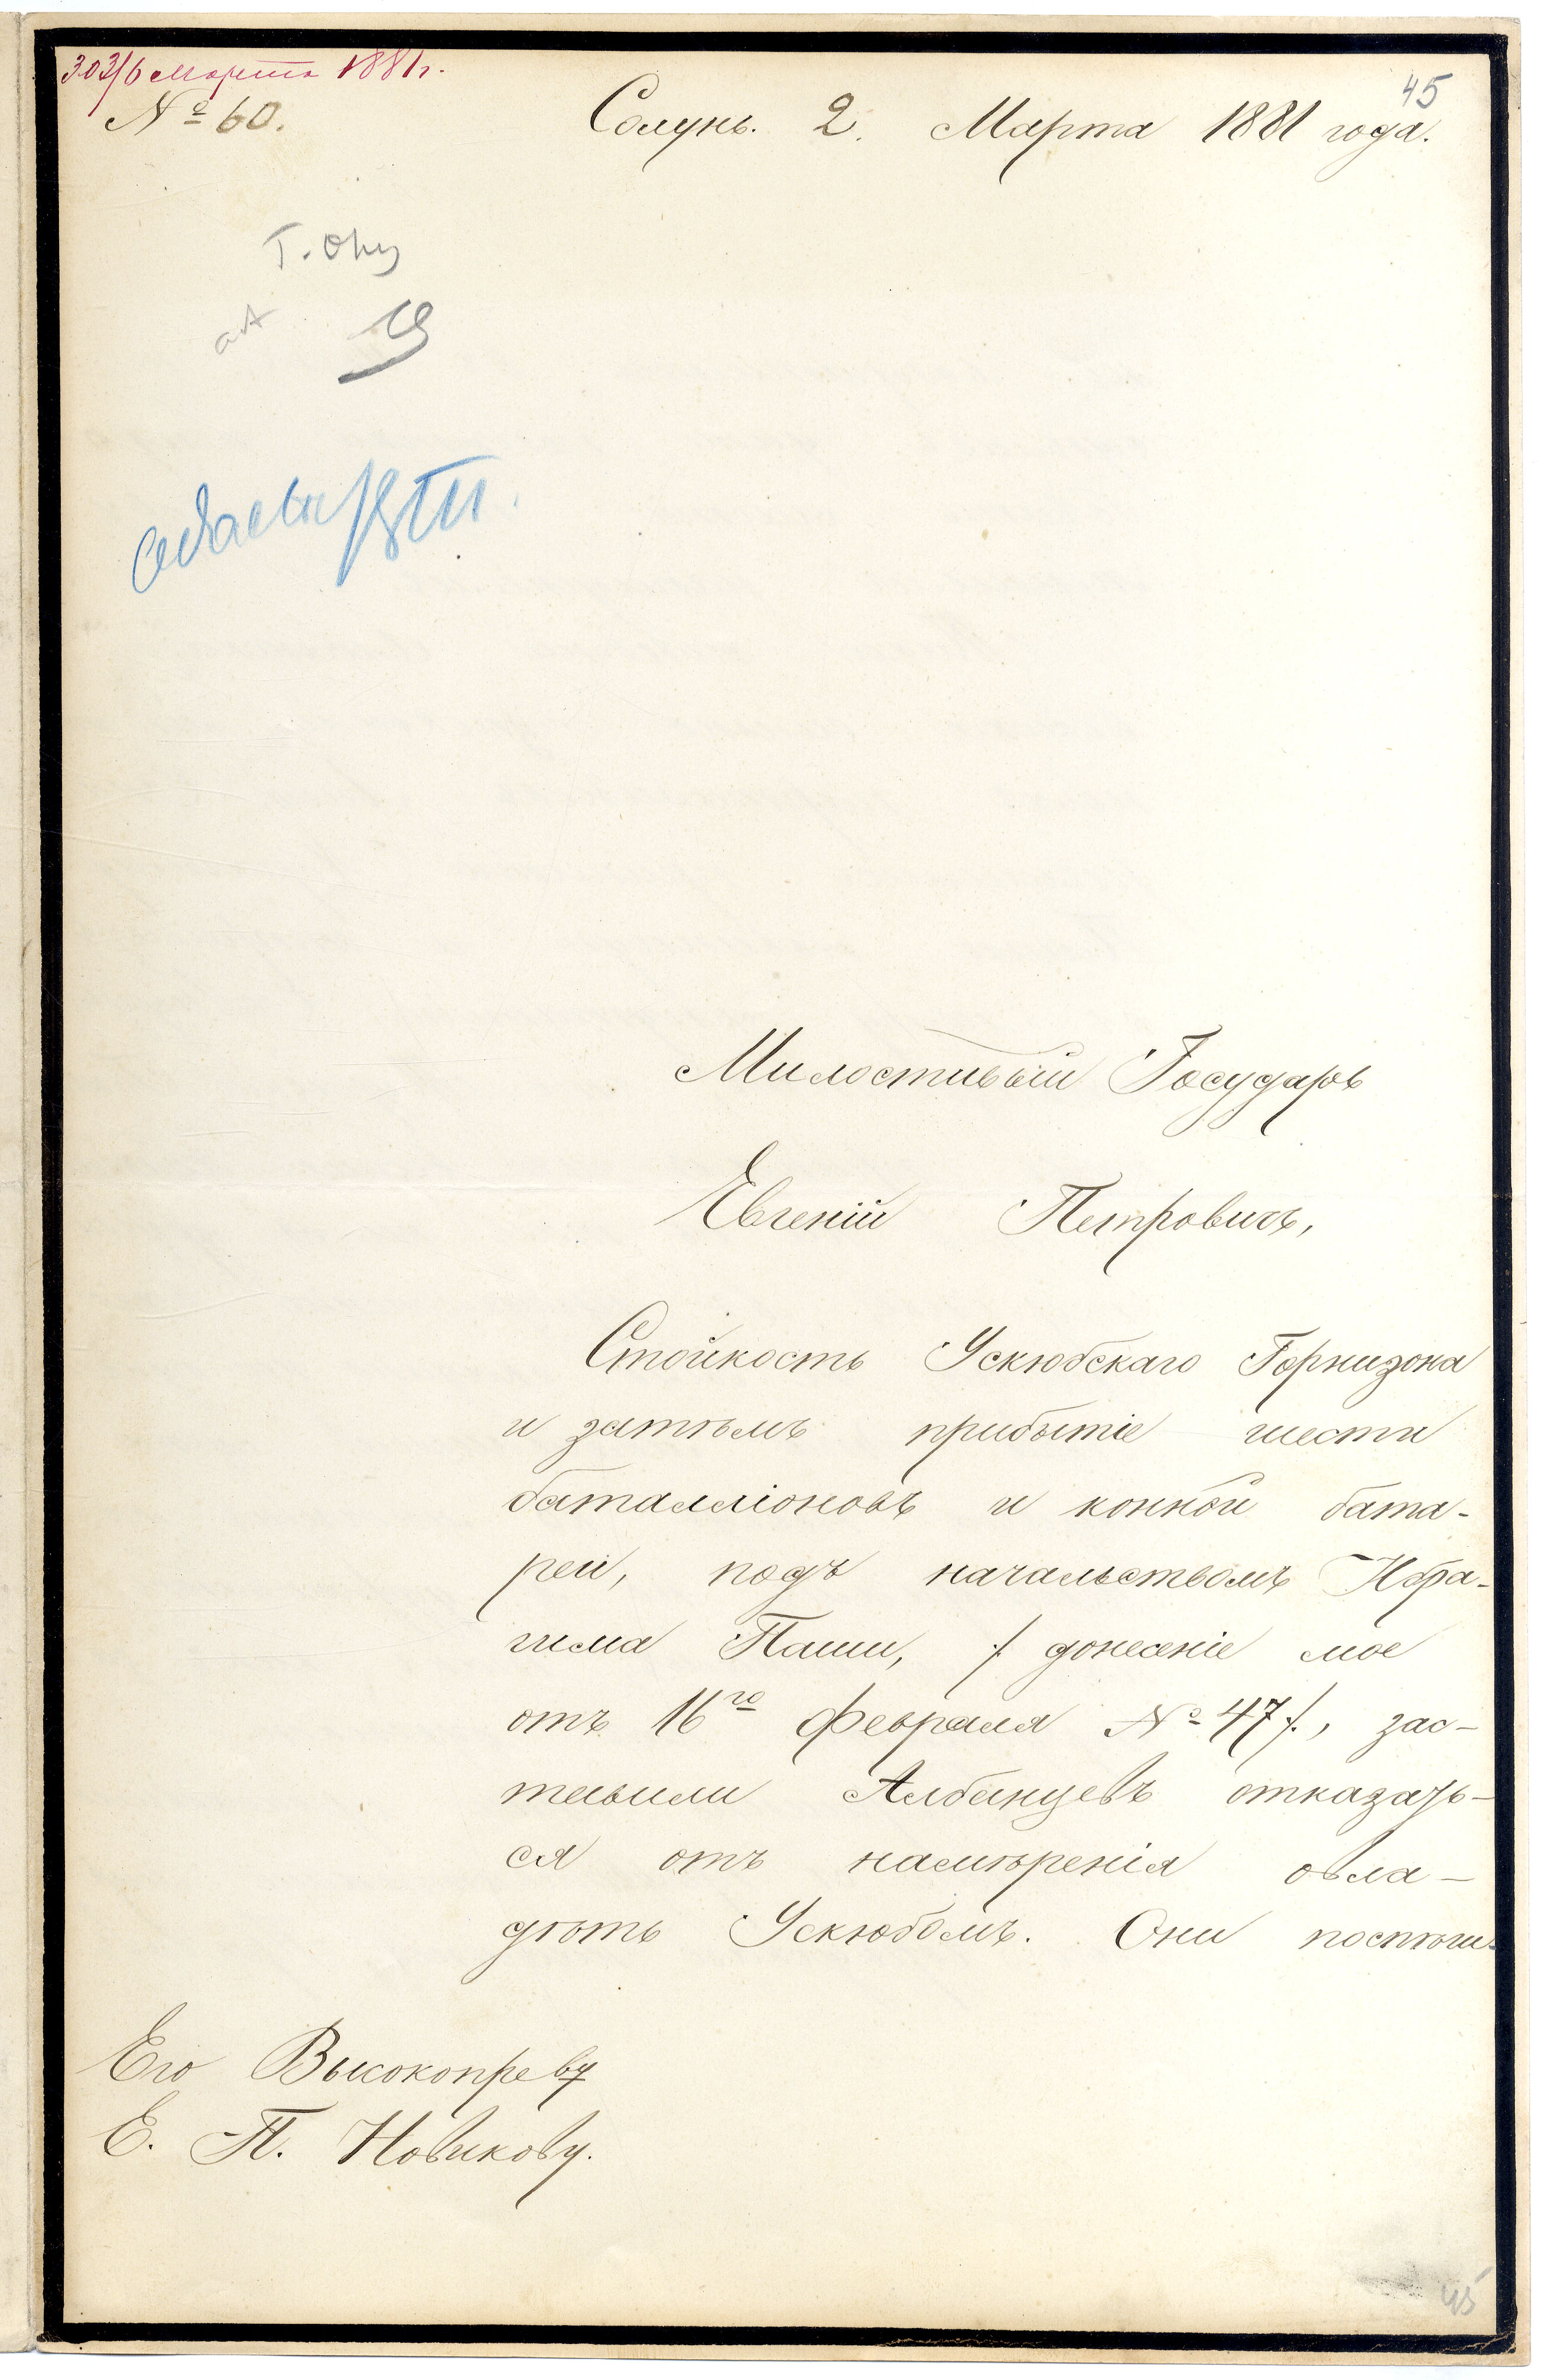 303/6 Марта 1881 г.
45
№ 60.
Солунь. 2. Марта 1881 года.
Г. Ону
Милостивый Государь
Евгеній Петровичъ,
Стойкость Ускюбскаго Горнизона
и затѣмъ прибытіе шести
баталліоновъ и конной бата-
реи, подъ начальствомъ Ибра-
гима Паши, /. донесеніе мое
отъ 16го Февраля № 47 /., зас-
тавили Албанцевъ отказать-
ся отъ намѣренія овла-
дѣть Ускюбомъ. Они поспѣши-
Его Высокопрев
Е. П. Новикову.
45